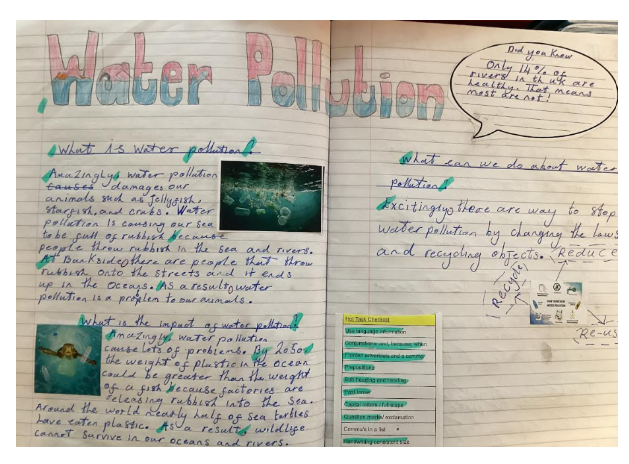 Water Pollution
What is Water pollution?
Amazingly, water pollution
causes damages our
animals such as jellyfish,
starfish, and crabs. Water
pollution is causing our sea
to be full of rubbish because
people throw rubbish in the sea and rivers.
At Bankside, there are people that throw
rubbish onto the streets and it ends
up in the oceans. As a result, water
pollution is a problem to our animals.
What is the impact of water pollution?
Amazingly, water pollution
cause lots of problems. By 2050
the weight of plastic in the ocean
could be greater than the weight
of a fish because factories are
releasing rubbish into the sea.
Around the world nearly half of sea turtles
have eaten plastic. As a result, wildlife
cannot survive in our oceans and rivers.
Did you know
Only 14% of
rivers in th UK are
healthy. That means
most are not!
What can we do about water
pollution?
Excitingly, there are way to stop
water pollution by changing the laws
and recycling objects.
Reduce
Recycle
Re-us
Hot Task Checklist
Use language information
Conjunctions and, because, when
Fronted adverbials and a comma
Prepositions
Sub heading and heading
Fact boxes
Capital letters full stops
Question marks/ exclamation
Comma's in a list
Handwriting consistent size